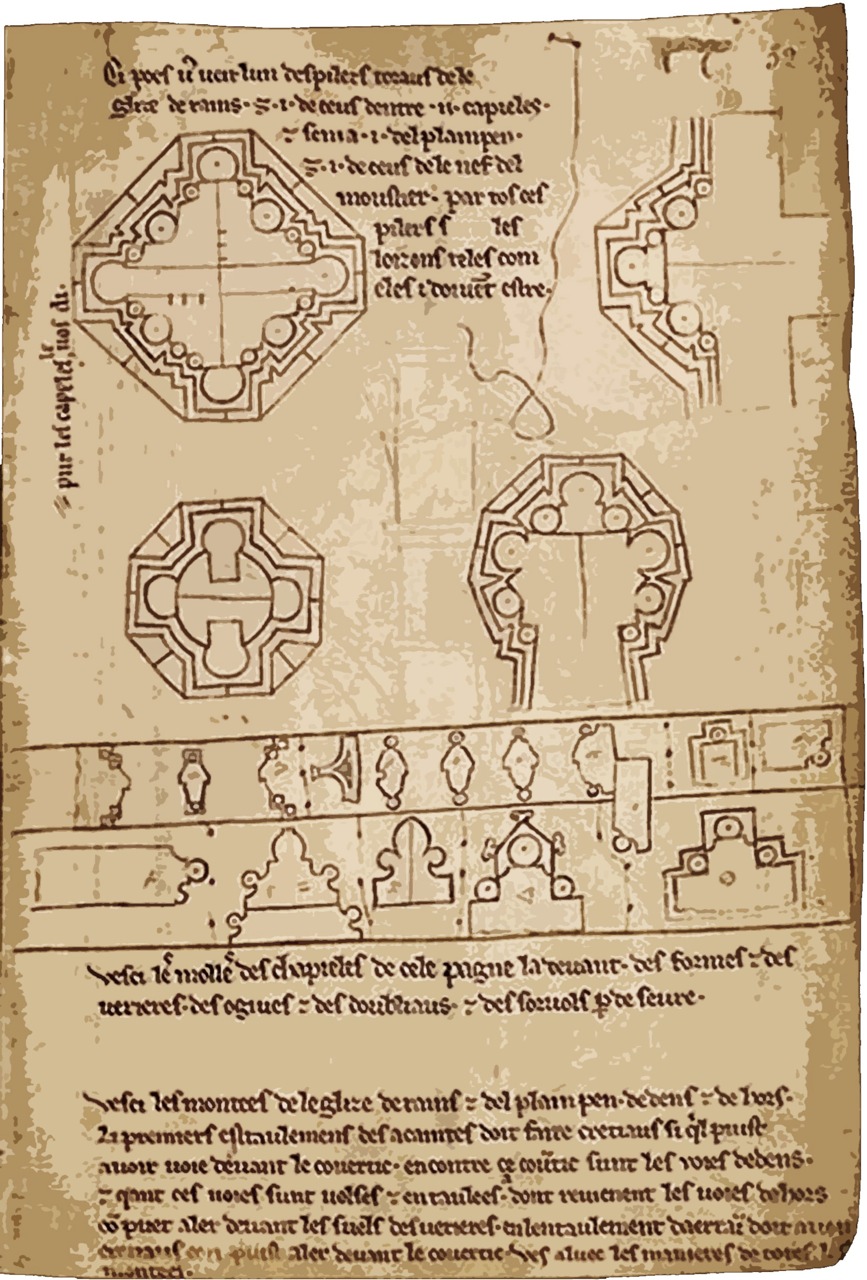 Ci poes ũ ueir lun despilers toraus dele
glize de rains · ⁊ · i · de ceus dentre · ii · capieles ·
⁊ senia · i · del plain pen ·
⁊ · i · de ceus de le nef del
moustier · par tos ces
pilers s les
loizons teles com
eles i doiuēt estre ·
pur les capeles
Vesci les molles des chapieles de cele pagne la deuant · des formes ⁊ des
uerieres · des ogiues ⁊ des doubliaus · ⁊ des soruols ꝑ de seure ·
Vesci les montees de le glize de rains ⁊ del plain pen · dedens ⁊ de hors ·
Li premiers estaulemens des acaintes doit faire cretiaus si q̇l puist
auoir uoie deuant le couertic · encontre ce couẽtic sunt les uoies dedens ·
⁊ qant ces uoies sunt uolses ⁊ entaulees · dont reuienent les uoies dehors
cõ puet aler deuant les suels des uerieres · en lentaulement daerraī doit auoir
cretiaus con puist aler deuant le couertic · Ves aluec les manieres de totes les
montees ·